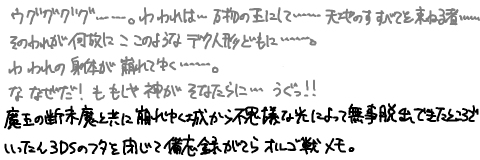 ウグググググ……。わ われは… 万物の王にして…… 天地のすすべてを束ねる者……
そのわれが何故に こ このような デク人形どもに……。
わ われの 身体が 崩れてゆく……。
な なぜだ! も もしや 神が そなたらに… うぐっ!!
魔王の断末魔と共に崩れゆく城から不思議な光によって無事脱出できたところで
いったん3DSのフタを閉じて備忘録がてら オルゴ戦メモ。